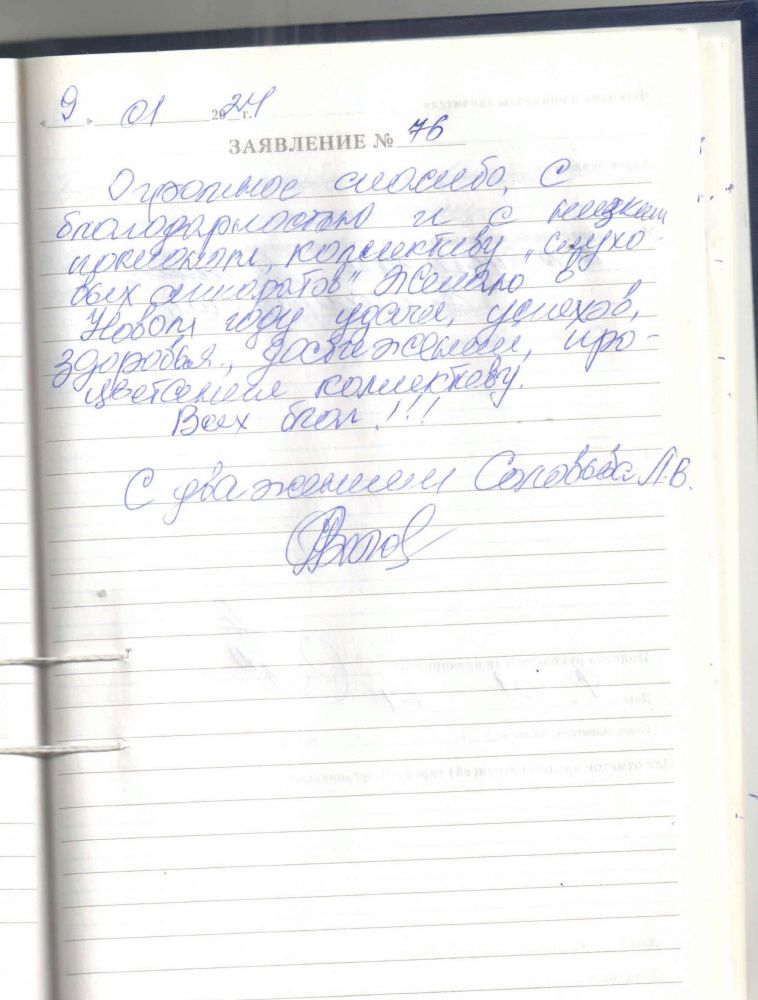 « 9 » 01 2024 г.
ЗАЯВЛЕНИЕ № 76
Огромное спасибо, С
благодарностью и с низким
поклоном, коллективу „слухо-
вых аппаратов" Желаю в
Новом году удачи, успехов,
здоровья, достижений, про-
цветания коллективу.
Всех благ!!!
С уважением Соловьёва Л.В.